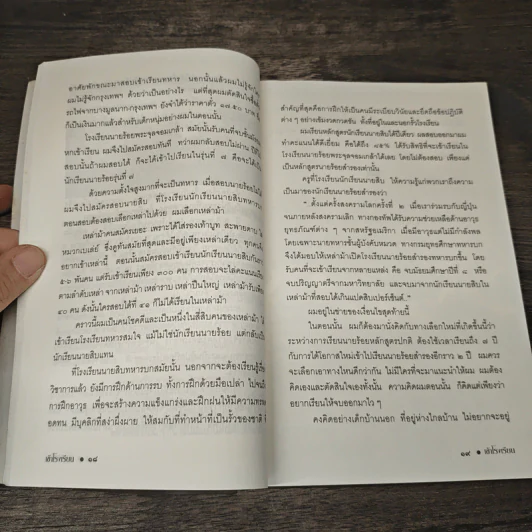 อาศัยพักขณะมาสอบเข้าเรียนทหาร นอกนั้นแล้วผมไม่รู้จัก
ผมไม่รู้จักกรุงเทพฯ ด้วยว่าเป็นอย่างไร แต่ที่สุดผมตัดสินใจขึ้น
รถไฟจากบางมูลนาก-กรุงเทพฯ ยังจำได้ว่าราคาตั๋ว ๑๗.๕๐ บาท
ก็เป็นเงินมากแล้วสำหรับเด็กหนุ่มอย่างผมในตอนนั้น
โรงเรียนนายร้อยพระจุลจอมเกล้า สมัยนั้นรับคนที่จบชั้นมัธยม
หกเข้าเรียน ผมจึงไปสมัครสอบทันที ว่าผมกลับสอบไม่ผ่าน
สอบนั้นถ้าผมสอบได้ ก็จะได้เข้าไปเรียนในรุ่นที่ ๗ คือจะได้เป็น
นักเรียนนายร้อยรุ่นที่ ๗
ด้วยความตั้งใจสูงมากที่จะเป็นทหาร เมื่อสอบนายร้อยไม่ได้
ผมจึงไปสมัครสอบนายสิบ ที่โรงเรียนนักเรียนนายสิบทหารบก
ตอนสอบต้องสอบเลือกเหล่าไปด้วย ผมเลือกเหล่าม้า
เหล่าม้าคนสมัครเยอะ เพราะได้ใส่รองเท้าบูท สะพายดาบ
หมวกเบเล่ย์ ซึ่งดูทันสมัยที่สุดและมีอยู่เพียงเหล่าเดียว ทุกคน
อยากเข้าเหล่านี้ ตอนนั้นสมัครสอบเข้านักเรียนนายสิบกัน
๕-๖ พันคน แต่รับเข้าเรียนเพียง ๓๐๐ คน การสอบจะไล่คะแนน
ตามลำดับเหล่า จากเหล่าม้า เหล่าราบ เหล่าปืนใหญ่ เหล่าม้ารับเพียง
๔๐ คน ดังนั้นใครสอบได้ที่ ๔๑ ก็ไม่ได้เรียนในเหล่าม้า
คราวนี้ผมเป็นคนโชคดีและเป็นหนึ่งในสี่สิบคนของเหล่าม้า
เข้าเรียนโรงเรียนทหารสมใจ แม้ไม่ใช่นักเรียนนายร้อย แต่กลับเป็น
นักเรียนนายสิบแทน
ที่โรงเรียนนายสิบทหารบกสมัยนั้น นอกจากจะต้องเรียนรู้
วิชาการแล้ว ยังมีการฝึกด้านการรบ ทั้งการฝึกด้วยมือเปล่า ไปจน
การฝึกอาวุธ เพื่อจะสร้างความแข็งแกร่งและฝึกฝนให้มีความทรหด
อดทน มีบุคลิกที่สง่าผึ่งผาย ให้สมกับที่ทำหน้าที่เป็นรั้วของชาติ
เข้าโรงเรียน ● ๑๘
สำคัญที่สุดคือการฝึกให้เป็นคนมีระเบียบวินัยและยึดถือข้อปฏิบัติ
ต่าง ๆ อย่างเข้มงวดกวดขัน ทั้งที่อยู่ในและนอกรั้วโรงเรียน
ผมเรียนหลักสูตรนักเรียนนายสิบได้ปีเดียว ผมสอบออกมาผม
ทำคะแนนได้ดีเยี่ยม คือได้ถึง ๘๙% ได้รับสิทธิที่จะเข้าเรียนใน
โรงเรียนนายร้อยพระจุลจอมเกล้าได้เลย โดยไม่ต้องสอบ เพียงแต่
เป็นหลักสูตรนายร้อยสำรองเท่านั้น
ครูที่โรงเรียนนักเรียนนายสิบ ให้ความรู้แก่พวกเราถึงความ
เป็นมาของนักเรียนนายร้อยสำรองว่า
“ ตั้งแต่ครั้งสงครามโลกครั้งที่ ๒ เมื่อเราร่วมรบกับญี่ปุ่น
จนภายหลังสงครามเลิก ทางกองทัพได้รับความช่วยเหลือด้านอาวุธ
ยุทธภัณฑ์ต่าง ๆ จากสหรัฐอเมริกา เมื่อมีอาวุธแต่ไม่มีกำลังพล
โดยเฉพาะนายทหารชั้นผู้บังคับหมวด ทางกรมยุทธศึกษาทหารบก
จึงได้มอบให้เหล่าม้าเปิดโรงเรียนนายร้อยสำรองทหารบกขึ้น โดย
รับคนที่จะเข้าเรียนจากหลายแหล่ง คือ จบมัธยมศึกษาปีที่ ๘ หรือ
จบปริญญาตรีจากมหาวิทยาลัย และจบมาจากนักเรียนนายสิบใน
เหล่าม้าที่สอบได้เกินแปดสิบเปอร์เซ็นต์.”
ผมอยู่ในข่ายของเงื่อนไขสุดท้ายนี้
ในตอนนั้น ผมก็ต้องมานั่งคิดกับทางเลือกใหม่ที่เกิดขึ้นนี้ว่า
ระหว่างการเรียนนายร้อยหลักสูตรปกติ ต้องใช้เวลาเรียนถึง ๗ ปี
กับการได้โอกาสใหม่เข้าไปเรียนนายร้อยสำรองอีกราว ๒ ปี ผมควร
จะเลือกเอาทางไหนดีกว่ากัน ไม่มีใครที่จะมาแนะนำให้ผม ผมต้อง
คิดเองและตัดสินใจเองทั้งนั้น ความคิดผมตอนนั้น ก็คิดแต่เพียงว่า
อยากเรียนให้จบออกมาไว ๆ
คงคิดอย่างเด็กบ้านนอก ที่อยู่ห่างไกลบ้าน ไม่อยากจะอยู่
๑๙ ● เข้าโรงเรียน